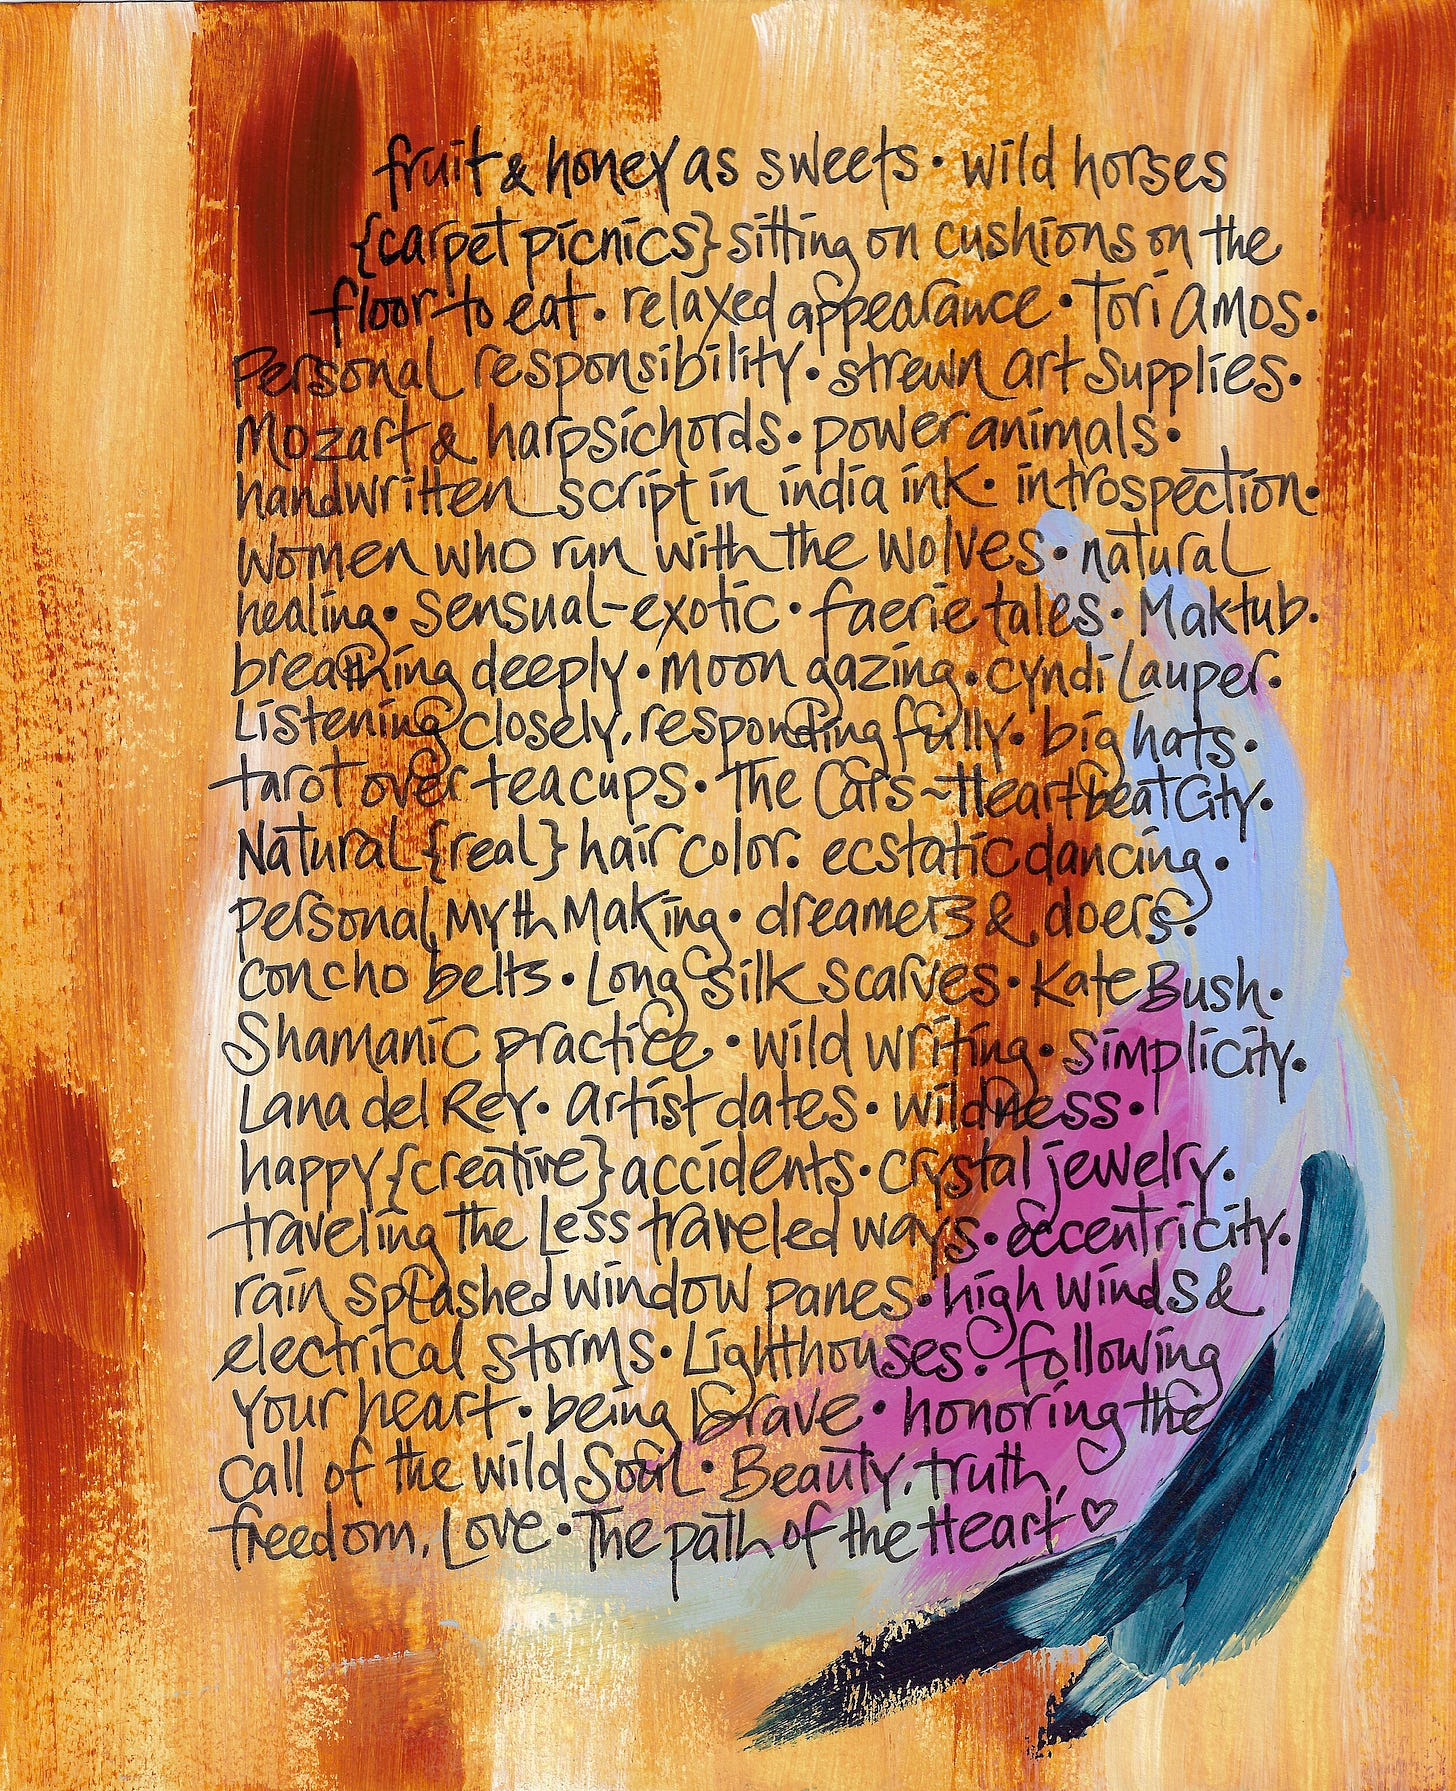 fruit & honey as sweets • wild horses
{carpet picnics} sitting on cushions on the
floor to eat • relaxed appearance • Tori Amos •
Personal responsibility • strewn art supplies •
Mozart & harpsichords • power animals •
handwritten script in india ink • introspection •
Women who run with the Wolves • natural
healing • sensual-exotic • faerie tales • Maktub •
breathing deeply • moon gazing • cyndi Lauper •
Listening closely, responding fully • big hats •
tarot over teacups • The Cars ~ Heartbeat City •
Natural {real} hair color • ecstatic dancing •
personal myth making • dreamers & doers •
concho belts • Long silk scarves • Kate Bush •
Shamanic practice • wild writing • simplicity •
Lana del Rey • artist dates • wildness •
happy {creative} accidents • crystal jewelry •
traveling the less traveled ways • eccentricity •
rain splashed window panes • high winds &
electrical storms • Lighthouses • following
your heart • being brave • honoring the
call of the wild Soul • Beauty, truth,
freedom, Love • The path of the Heart ♡